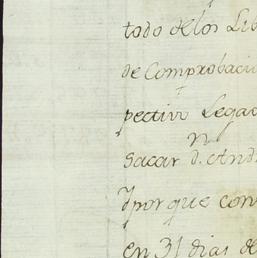 todo de los Lib
de Comprobacio
pectivo Legac
Sacar D. And
Y por que con
en 31 dias de